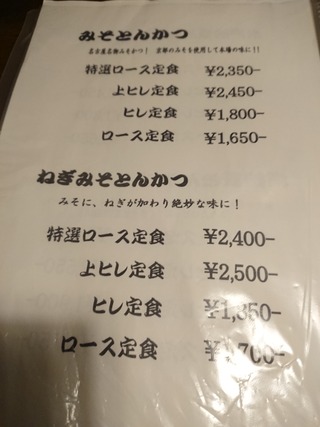 みそとんかつ
名古屋名物みそかつ! 京都のみそを使用して本場の味に!!
特選ロース定食 ¥2,350-
上ヒレ定食 ¥2,450-
ヒレ定食 ¥1,800-
ロース定食 ¥1,650-
ねぎみそとんかつ
みそに、ねぎが加わり絶妙な味に!
特選ロース定食 ¥2,400-
上ヒレ定食 ¥2,500-
ヒレ定食 ¥1,850-
ロース定食